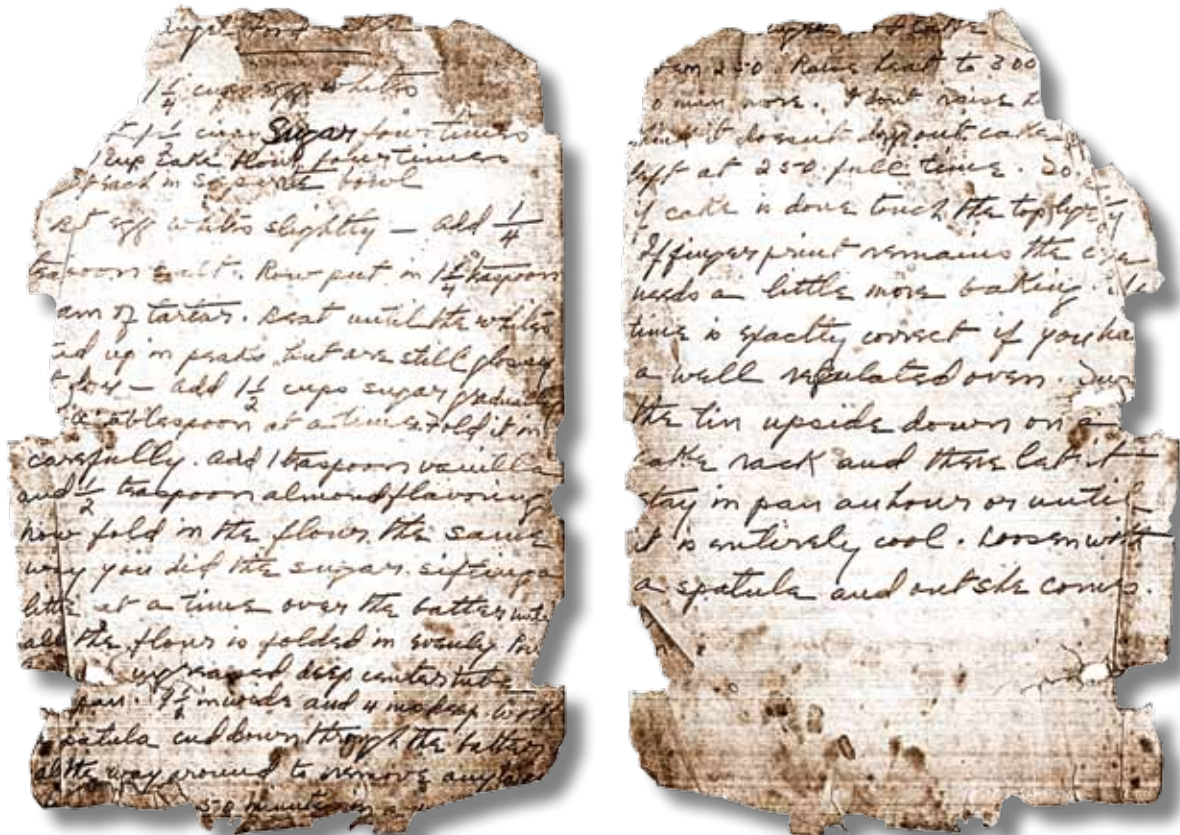 1 1/4 cups egg whites
1 1/2 cups Sugar four times
1 cup cake flour four times
each in separate bowl
egg whites slightly — add 1/4
teaspoon salt. Now put in 1 1/4 teaspoon
am of tartar. Beat until the whites
nd up in peaks but are still glossy
— add 1 1/2 cups sugar gradually
tablespoon at a time. Fold it in
carefully. Add 1 teaspoon vanilla
and 1/2 teaspoon almond flavoring
now fold in the flour the same
way you did the sugar. sifting a
little at a time over the batter until
all the flour is folded in evenly
ungreased deep center tube
pan. in wide and 4 in deep. Work
spatula down through the batter
all the way around to remove any
50 minutes in
ven 250. Raise heat to 300
0 min more. I dont raise
it doesn't dry out cake
left at 250 full time. To
if cake is done touch the top
If finger print remains the cake
needs a little more baking.
time is exactly correct if you ha
a well regulated oven.
the tin upside down on a
ake rack and there let it
stay in pan an hour or until
it is entirely cool. Loosen with
a spatula and out she comes.